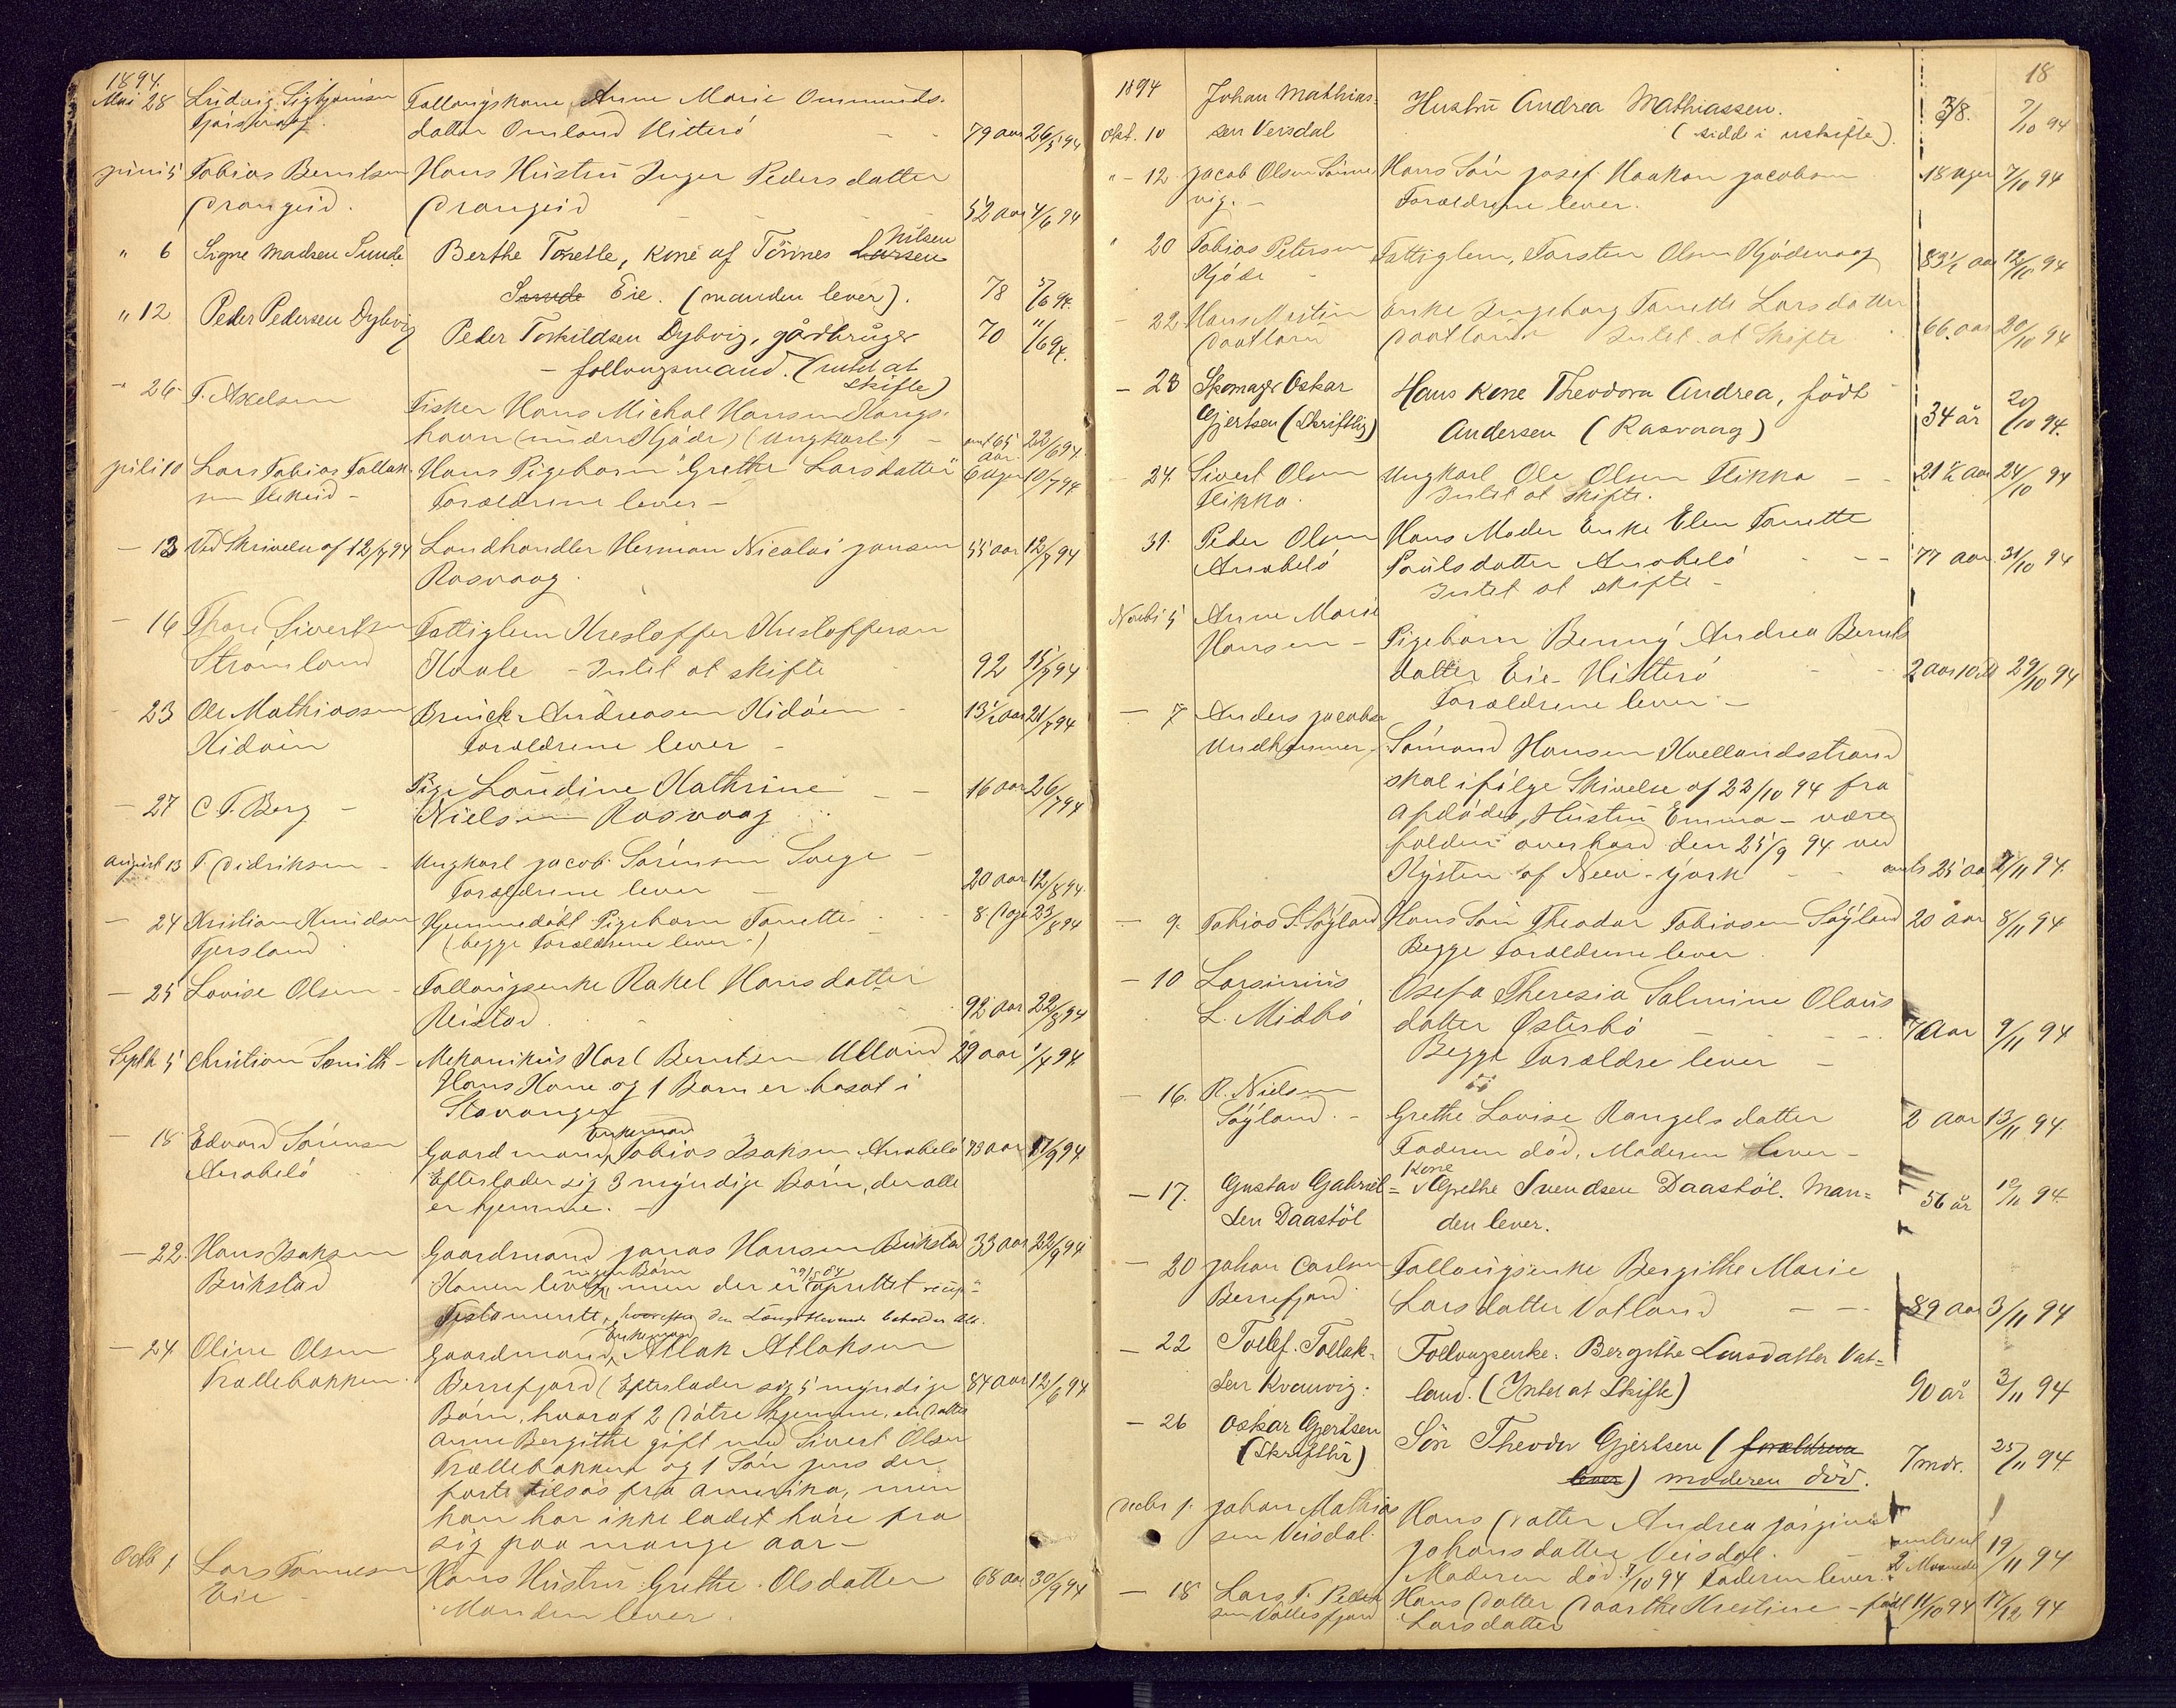 1894.
Mai 28 Ludvig Sigbjørnsen Follaugskone Anne Marie Ommunds-
datter Omland Hitterö - - 79 aar 26/5 94
juni 5 Tobias Berntsen Hans Hustru Inger Pedersdatter
Prangeid. Prangeid - - - 52 aar 4/6 94
" 6 Signe Madsen Sunde. Berthe Tonette, kone af Tönnes Larsen Nilsen
Sunde Eie. (manden lever). 78 5/6 94.
" 12. Peder Pedersen Dybvig Peder Torkildsen Dybvig, gårdbruger 70 11/6 94.
- follougsmand. (intet at
skifte)
- 26. T. Axelsen Fisker Hans Michal Hansen Kongs-
havn (indre Kjöde) (Ungkarl) - omt 65 aar 22/6 94.
juli 10 Lars Tobias Tollak- Hans Pigebarn "Grethe Larsdatter" 6 Uger 10/7 94
sen Flikeid - Forældrene lever -
- 13 Ved Skrivelse af 12/7 94 Landhandler Herman Nicolai Jansen 55 aar 12/7 94
Rasvaag.
- 16 Thore Sivertsen Fattiglem Kristoffer Kristoffersen
Strömland Haale - Intet at skifte 92 15/7 94
- 23 Ole Mathiassen Brinck Andreasen Hidöen - 13 1/2 aar 21/7 94
Hidöen Forældrene lever -
- 27 C F. Berg - Pige Laudine Kathrine - - 16 aar 26/7 94
Nielsen Rasvaag
august 13 T. Didriksen - Ungkarl Jacob Sörensen Svege -
Forældrene lever - 20 aar 12/8 94.
- 24 Kristian Knudsen Hjemmedöbt Pigebarn Tonette - 8 Dage 23/8 94
Fjersland (begge Forældrene lever.)
- 25 Lovise Olsen - Follougsenke Rakel Hansdatter
Reistad. 92 aar 22/8 94
Septb 5 Christian Smith - Mekanikus Karl Berntsen Ulland 29 aar 1/7 94
Hans Kone og 1 Barn er bosat i
Stavanger
- 18 Edvard Sörensen Gaardmand, Enkemand Tobias Isaksen Anabelö 73 aar 17/9 94
Anabelö Efterlader sig 3 myndige Börn, der alle
er hjemme. -
- 22. Hans Isaksen Gaardmand Jonas Hansen Birkstad 33 aar 22/9 94
Birkstad Konen lever, ingen Börn men der er oprettet recip-
Testamente, hvorefter den Længstlevende beholder Alt.
- 24 Oline Olsen Gaardmand, Enkemand Atlak Atlaksen
Trællebakken. Berrefjord (Efterlader sig 5 myndige 84 aar 12/6 94
Börn, hvoraf 2 Dötre hjemme, en Datter
Anne Bergithe gift med Sivert Olsen
Trællebakken og 1 Sön Jens der
foer tilsös fra Amerika, men
han har ikke ladet höre fra
sig paa mange aar -
Octb 1 Lars Tönnesen Hans Hustru Grethe Olsdatter 68 aar 30/9 94
Eie - Manden lever.
18
1894 Johan Mathias- Hustru Andrea Mathiassen. 38. 7/10 94
Okt. 10 sen Veisdal (sidd i uskifte).
" - 12. Jacob Olsen Sönne- Hans Sön Josef Haakon Jacobsen 18 uger 7/10 94
vig. - Forældrene lever.
" 20 Tobias Petersen Fattiglem, Torsten Olsen Kjödevaag 83 1/2 aar 12/10 94
Kjöde -
- 22. Hans Martin Enke Ingeborg Tonette Larsdatter
Daatland Daatland Intet at Skifte 66 aar 20/10 94
- 23 Skomager Oskar Hans kone Theodora Andrea, födt
Gjertsen (Skriftlig) Andersen (Rasvaag) 34 år 20/10 94.
- 24. Sivert Olsen Ungkarl Ole Olsen Flikka - - 21 1/2 aar 24/10 94
Flikka. Intet at skifte.
31. Peder Olsen Hans Moder Enke Elen Tonette
Anabelö Paulsdatter Anabelö - - - 77 aar. 31/10 94
Intet at skifte -
Novbr 5 Anne Marie
Hansen - Pigebarn Benny Andrea Bernts
datter Eie - Hitterö 2 aar 10 M 29/10 94
Forældrene lever -
- 7 Anders Jacobsen Sömand Hansen Kvellandsstrand
Urdhammer skal ifölge Skrivelse af 22/10 94 fra
Afdödes Hustru Emma - være
falden overbord den 25/9 94 ved
Kysten af New-York - - omtr 25 aar 7/11 94.
- 9. Tobias S. Söyland Hans Sön Theodor Tobiasen Söyland 20 aar 8/11 94
Begge Forældrene lever.
- 10 Larsinius Osefa Theresia Salmine Olaus
L. Midbö datter Østerbö - - - - 7 Aar 9/11 94
Begge Forældre lever -
- 16. R. Nielsen
Söyland. - Grethe Lovise Rangelsdatter 2 aar 13/11 94.
Faderen död, Moderen lever -
- 17. Gustav Gabriel- = kone Grethe Svendsen Daastöl. Man=
sen Daastöl den lever. 56 år 12/11 94.
- 20 Johan Carlsen Follougsenke Bergithe Marie
Berrefjord. Larsdatter Vatland - - - 89 aar 3/11 94
- 22 Tollef. Tollak- Follougsenke. Bergithe Larsdatter Vat=
sen Kvanvig: land. (Intet at Skifte) 90 år 3/11 94
- 26 Oskar Gjertsen Sön Theodor Gjertsen (forældrene
(Skriftlig) lever) moderen död. 7 mdr. 25/11 94.
Decbr 1. Johan Mathias Hans Datter Andrea Jörgine
sen Veisdal. Johansdatter Veisdal. - omtrent 2 Maaneder 19/11 94
Moderen död 7/10 94 Faderen lever.
- 18 Lars T. Hans Datter Daarthe Kristine - födt 11/10 94 17/12 94
sen Vallesfjord Larsdatter